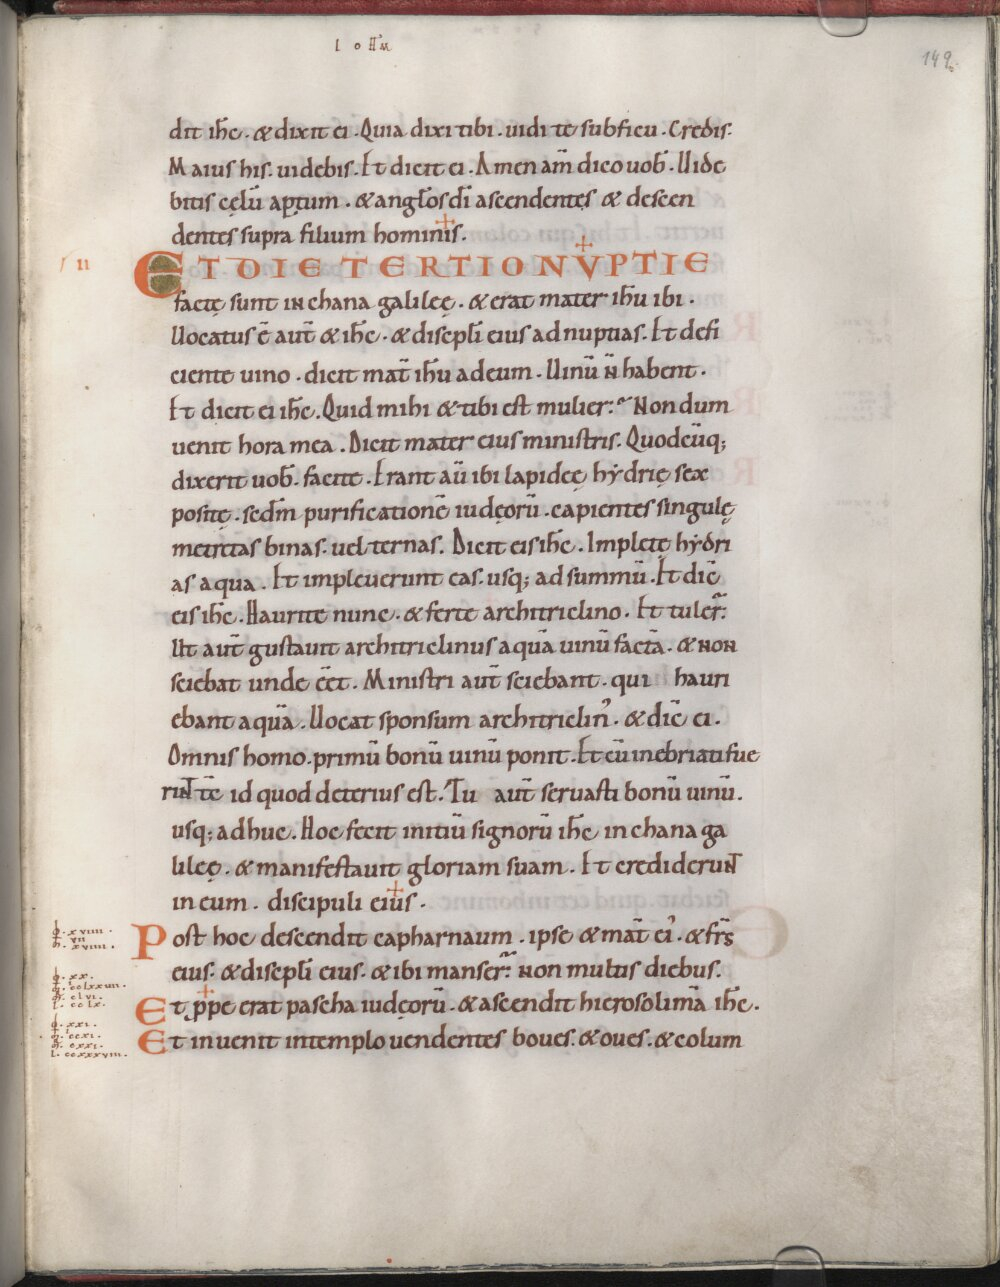 IOHAN
149
dit ihc. & dixit ei. Quia dixi tibi. uidi te sub ficu. Credis.
Maius his. uidebis. Et dicit ei. Amen am̄ dico uob̄. Uide
bitis cęlū aptum. & anglōs dī ascendentes & descen
dentes supra filium hominis.
II
ET DIE TERTIO NVPTIE
factę sunt in chana galileę. & erat mater ihū ibi.
Uocatus ē aut̄ & ihc̄. & discipli eius ad nuptias. Et defi
ciente uino. dicit mat̄ ihū ad eum. Uinū n̄ habent.
Et dicit ei ihc̄. Quid mihi & tibi est mulier? Nondum
uenit hora mea. Dicit mater eius ministris. Quodcūq;
dixerit uob̄. facite. Erant aū ibi lapideę hẏdrię sex
positę. sedm̄ purificationē iudęorū. capientes singulę
metretas binas. uel ternas. Dicit eis ihc̄. Implete hẏdri
as aqua. Et impleuerunt eas. usq; ad summū. Et dic̄
eis ihc̄. Haurite nunc. & ferte architriclino. Et tuler̄.
Ut aut̄ gustauit architriclinus aquā uinū factā. & non
sciebat unde eēt. Ministri aut̄ sciebant. qui hauri
ebant aquā. Uocat sponsum architriclin̉. & dic̄ ei.
Omnis homo. primū bonū uinū ponit. Et cū inebriati fue
rint tc̄ id quod deterius est. Tu aut̄ seruasti bonū uinū.
usq; adhuc. Hoc fecit initiū signorū ihc̄ in chana ga
lileę. & manifestauit gloriam suam. Et crediderunt
in eum. discipuli eius.
Post hoc descendit capharnaum. ipse & mat̄ eỉ. & frs̄
eius. & discipli eius. & ibi manser̄. non multis diebus.
Et ꝓpe erat pascha iudęorū. & ascendit hierosolimā ihc̄.
Et inuenit in templo uendentes boues. & oues. & colum